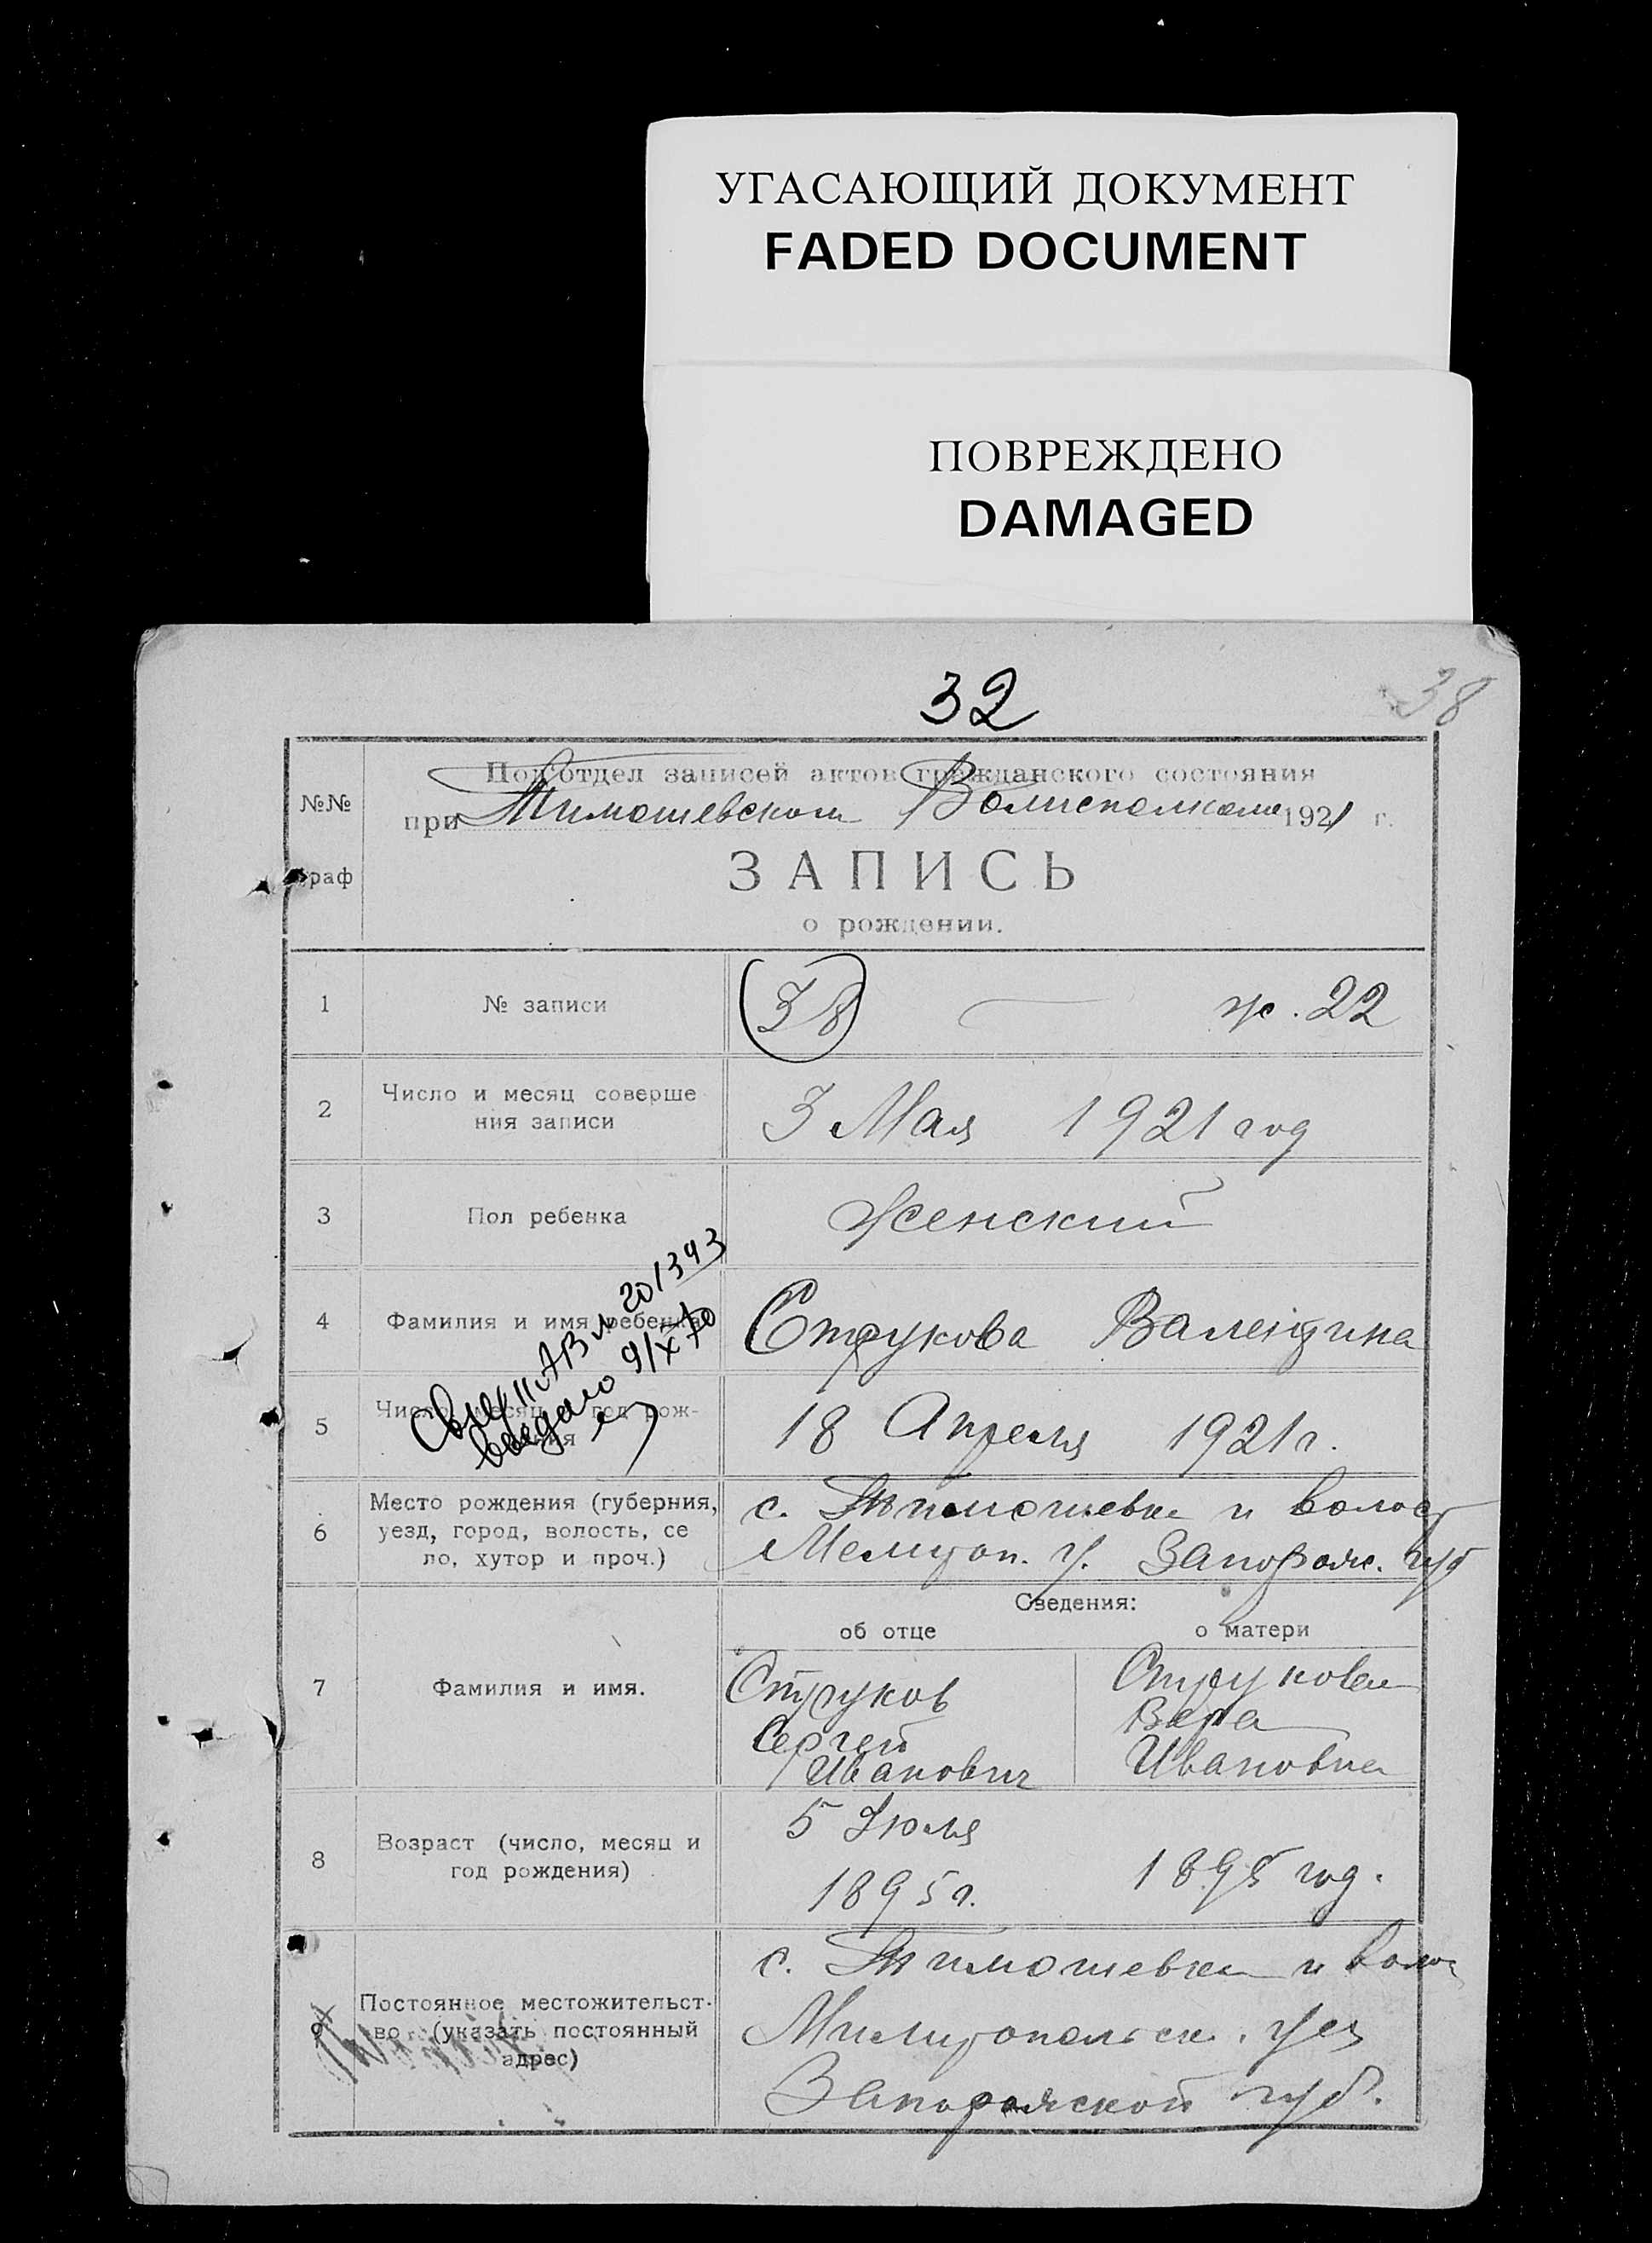 УГАСАЮЩИЙ ДОКУМЕНТ
FADED DOCUMENT
ПОВРЕЖДЕНО
DAMAGED
32
38
№№
раф
Подотдел записей актов гражданского состояния
при Тимошевском Волисполкоме 1921 г.
ЗАПИСЬ
о рождении.
1
№ записи
38 ж. 22
2
Число и месяц соверше
ния записи
3 Мая 1921 год
3
Пол ребенка
Женский
4
Фамилия и имя ребенка
Струкова Валентина
201393
9/X 70
5
Число, месяц год рож-
ния
18 Апреля 1921 г.
6
Место рождения (губерния,
уезд, город, волость, се
ло, хутор и проч.)
с. Тимошевка и волост
Мелитоп. у. Запорож. губ
Сведения:
об отце
о матери
7
Фамилия и имя.
Струков
Сергей
Иванович
Струкова
Вера
Ивановна
8
Возраст (число, месяц и
год рождения)
5 Июля
1895 г.
1895 год.
9
Постоянное местожительст-
во (указать постоянный
адрес)
с. Тимошевка и волос
Милитопольск. уез
Запорожской губ.